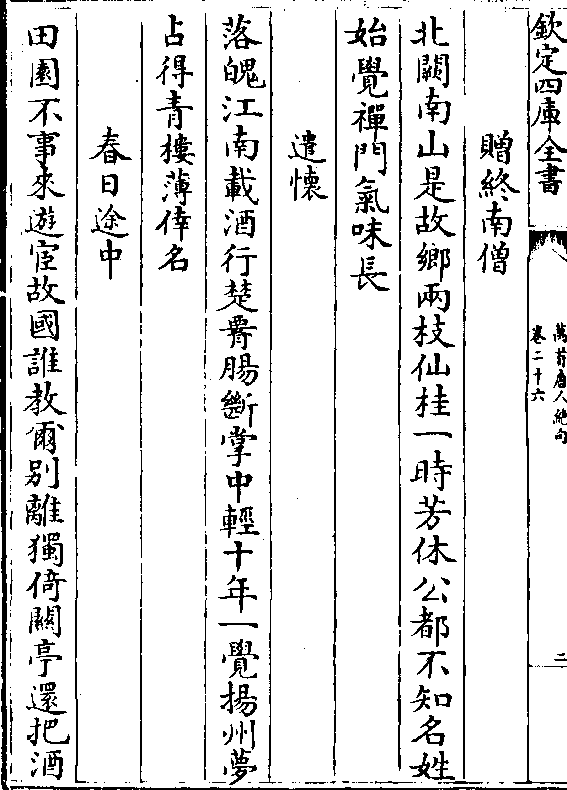 欽定四庫全書
萬首唐人絶句
卷二十六
二
贈終南僧
北闕南山是故鄉兩枝仙桂一時芳休公都不知名姓
始覺禪門氣味長
遣懷
落魄江南載酒行楚腰腸斷掌中輕十年一覺揚州夢
占得青樓薄倖名
春日途中
田園不事來遊宦故國誰教爾别離獨倚關亭還把酒